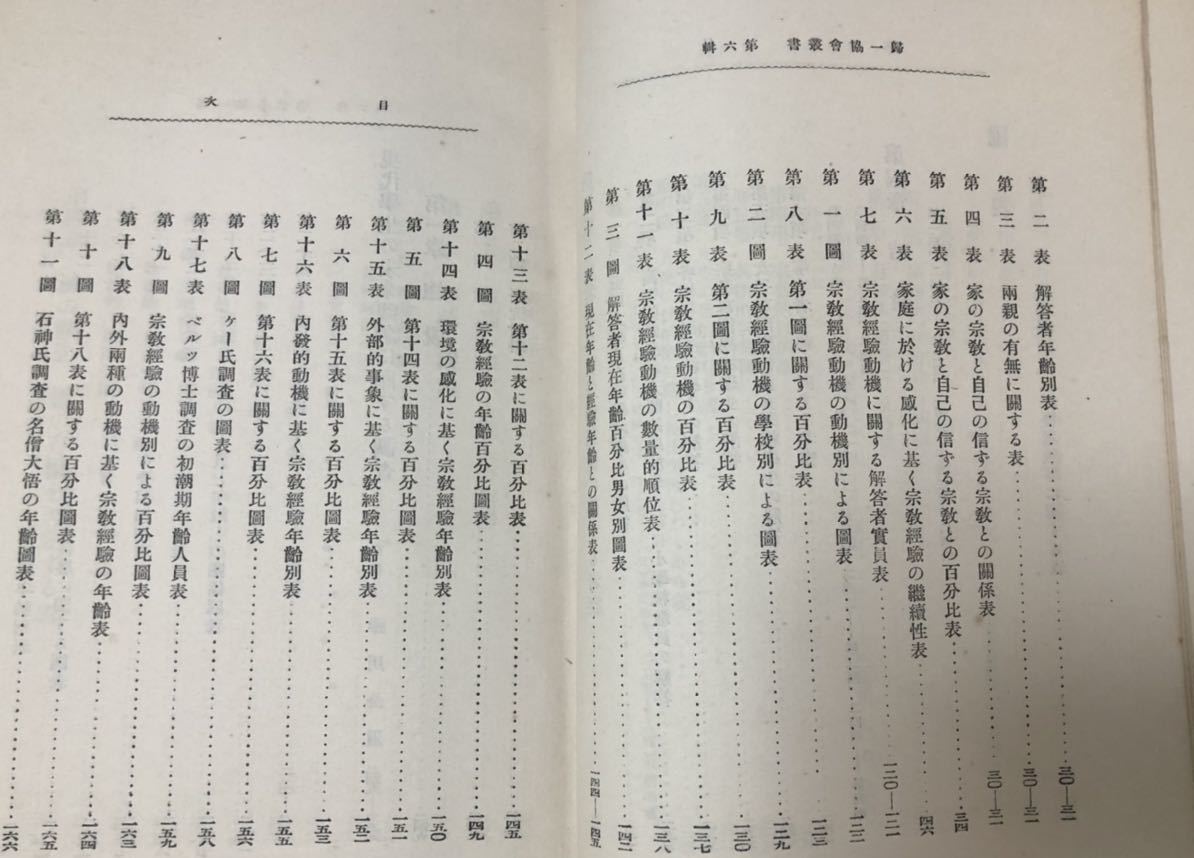 歸一協會叢書 第六輯
第二表 解答者年齡別表…………三〇—三一
第三表 兩親の有無に關する表…………三〇—三一
第四表 家の宗敎と自己の信ずる宗敎との關係表…………三〇—三一
第五表 家の宗敎と自己の信ずる宗敎との百分比表…………三四
第六表 家庭に於ける感化に基く宗敎經驗の繼續性表…………四六
第七表 宗敎經驗動機に關する解答者實員表…………一二〇—一二一
第一圖 宗敎經驗動機の動機別による圖表…………一二二
第八表 第一圖に關する百分比表…………一二三
第二圖 宗敎經驗動機の學校別による圖表…………一二九
第九表 第二圖に關する百分比表…………一三〇
第十表 宗敎經驗動機の百分比表…………一三七
第十一表 宗敎經驗動機の數量的順位表…………一三八
第三圖 解答者現在年齡百分比男女別圖表…………一四二
第十二表 現在年齡と經驗年齡との關係表…………一四四—一四五
目次
第十三表 第十二表に關する百分比表…………一四五
第四圖 宗敎經驗の年齡百分比圖表…………一四九
第十四表 環境の感化に基く宗敎經驗年齡別表…………一五〇
第五圖 第十四表に關する百分比圖表…………一五一
第十五表 外部的事象に基く宗敎經驗年齡別表…………一五二
第六圖 第十五表に關する百分比圖表…………一五三
第十六表 內發的動機に基く宗敎經驗年齡別表…………一五五
第七圖 第十六表に關する百分比圖表…………一五六
第八圖 ケー氏調查の圖表…………一五八
第十七表 ベルツ博士調查の初潮期年齡人員表…………一五九
第九圖 宗敎經驗の動機別による百分比圖表…………一六三
第十八表 內外兩種の動機に基く宗敎經驗の年齡表…………一六四
第十圖 第十八表に關する百分比圖表…………一六五
第十一圖 石神氏調查の名僧大悟の年齡圖表…………一六六